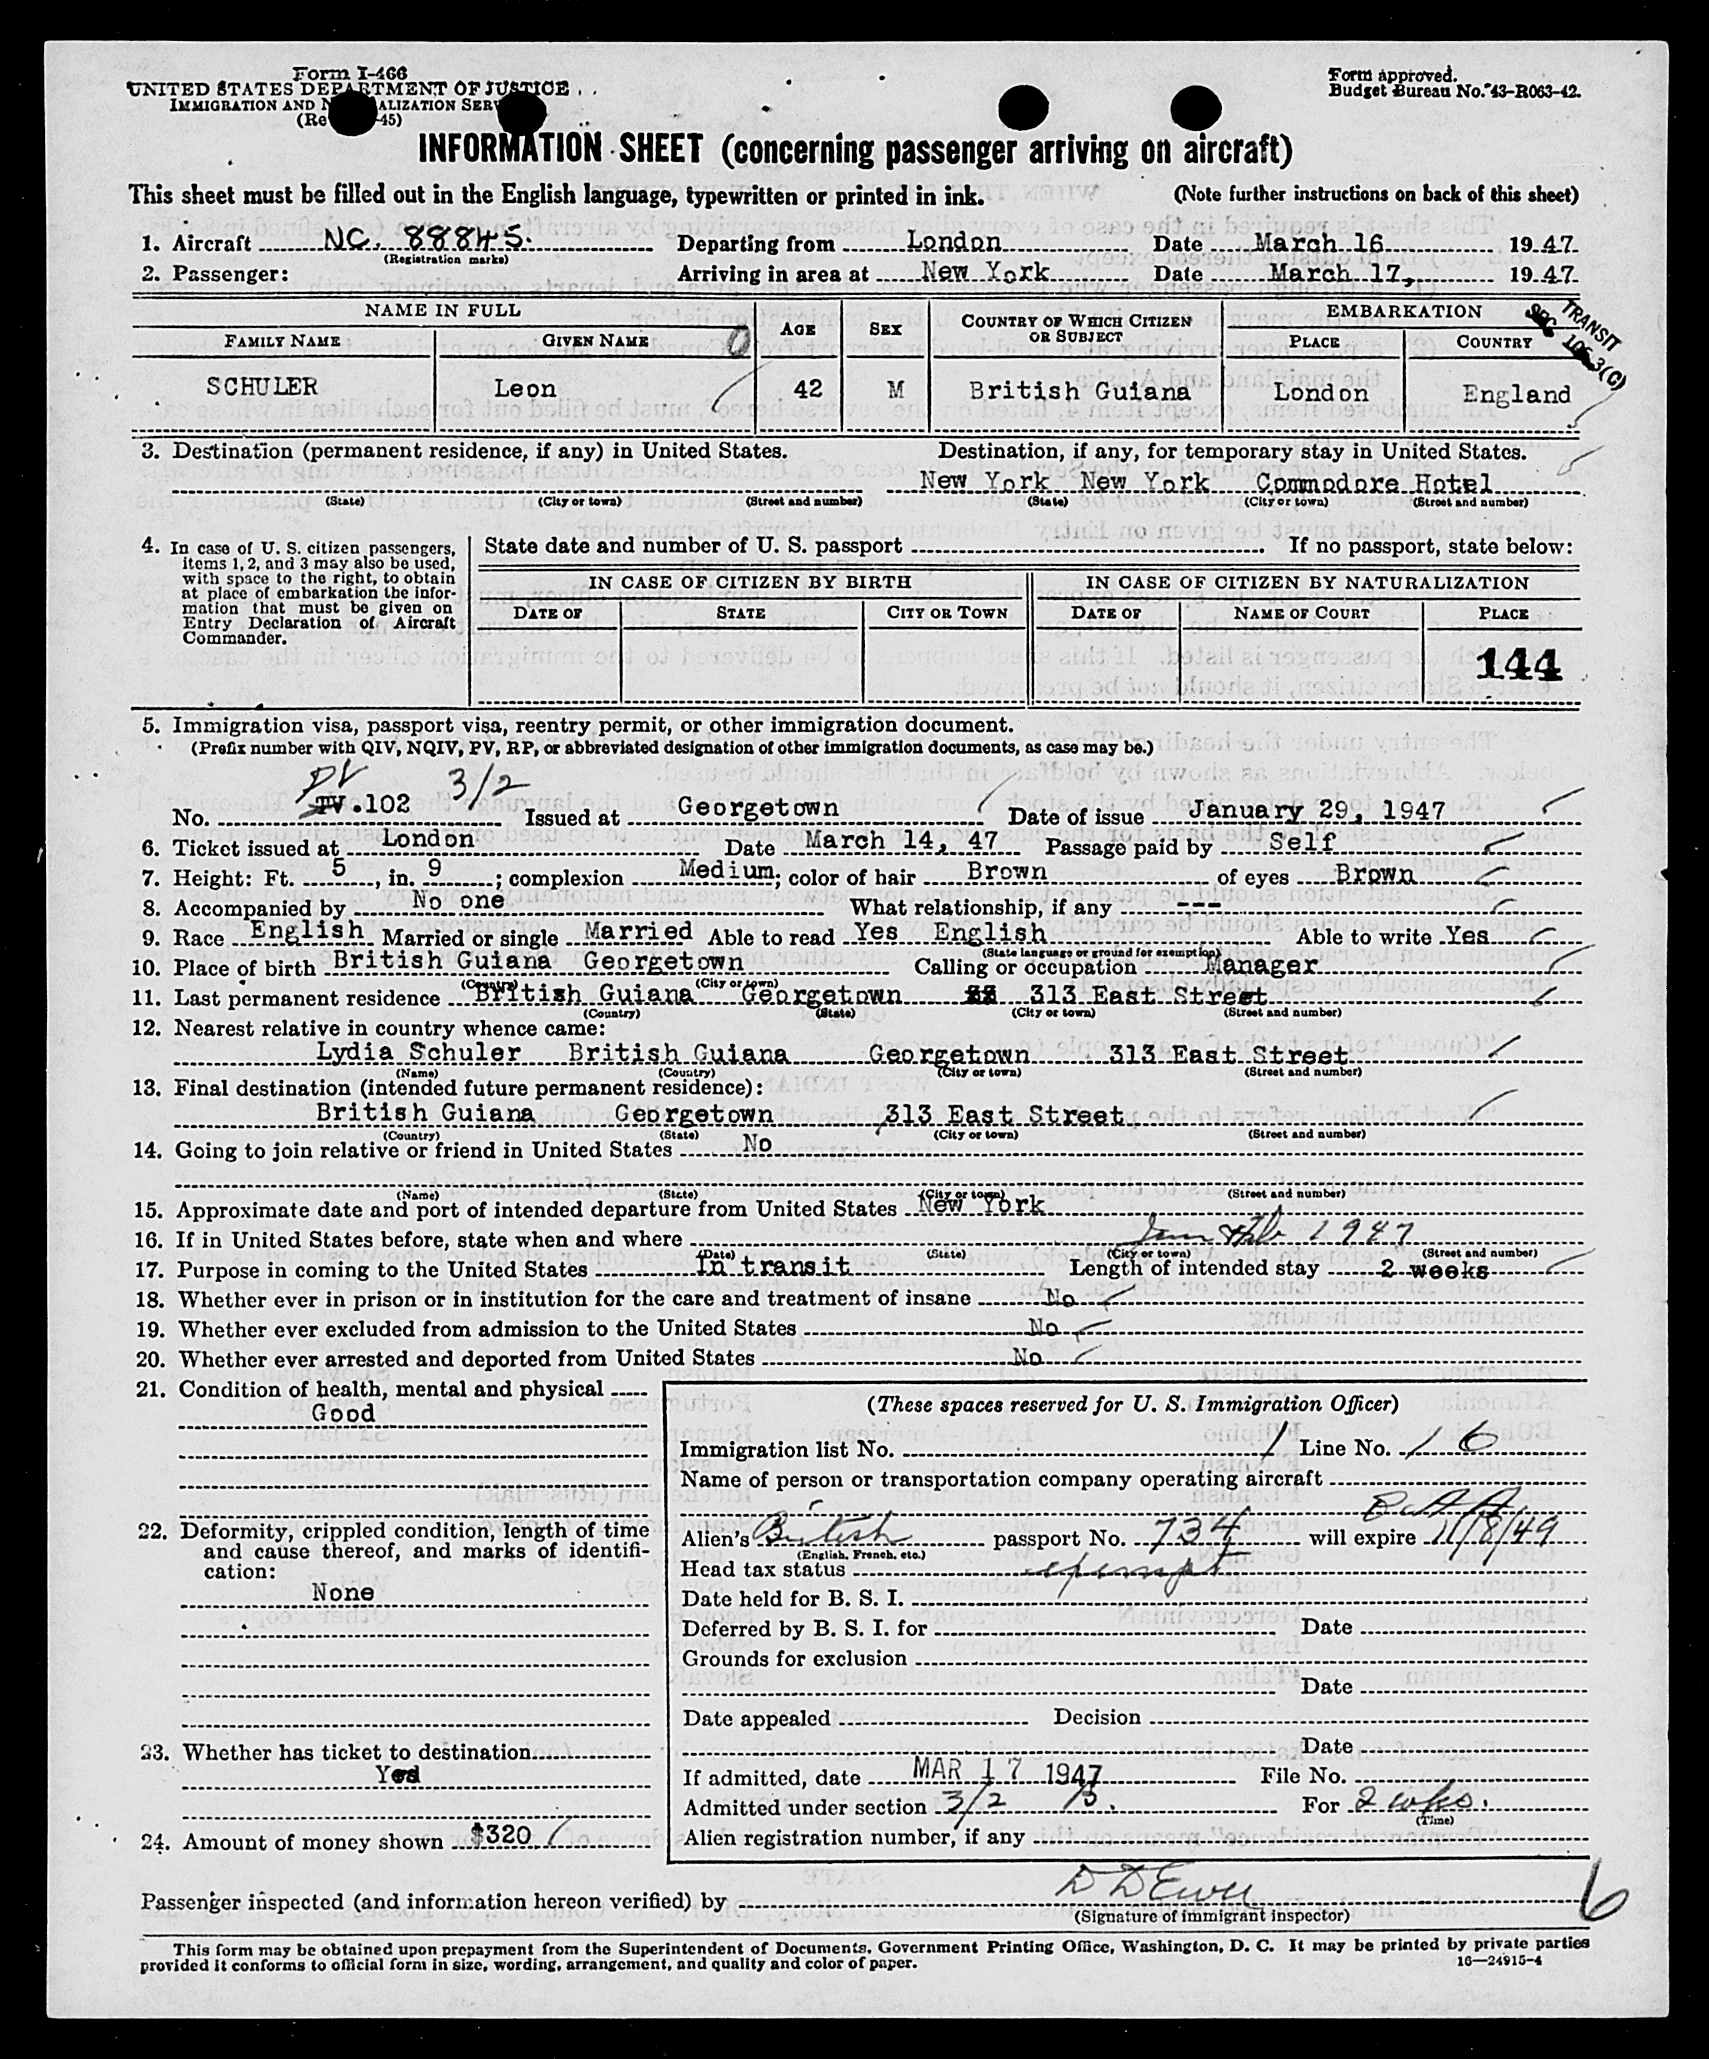 Form I-466
UNITED STATES DEPARTMENT OF JUSTICE
IMMIGRATION AND N ALIZATION SER
(Re -45)
Form approved.
Budget Bureau No. 43-R063-42.
INFORMATION SHEET (concerning passenger arriving on aircraft)
This sheet must be filled out in the English language, typewritten or printed in ink. (Note further instructions on back of this sheet)
1. Aircraft NC. 88845. Departing from London Date March 16 1947
(Registration marks)
2. Passenger: Arriving in area at New York Date March 17, 1947
NAME IN FULL AGE SEX COUNTRY OF WHICH CITIZEN OR SUBJECT EMBARKATION
FAMILY NAME GIVEN NAME PLACE COUNTRY
TRANSIT
SEC 105.3(C)
SCHULER Leon 42 M British Guiana London England
3. Destination (permanent residence, if any) in United States. Destination, if any, for temporary stay in United States.
New York New York Commodore Hotel
(State) (City or town) (Street and number) (State) (City or town) (Street and number)
4. In case of U. S. citizen passengers, items 1, 2, and 3 may also be used, with space to the right, to obtain at place of embarkation the information that must be given on Entry Declaration of Aircraft Commander.
State date and number of U. S. passport If no passport, state below:
IN CASE OF CITIZEN BY BIRTH IN CASE OF CITIZEN BY NATURALIZATION
DATE OF STATE CITY OR TOWN DATE OF NAME OF COURT PLACE
144
5. Immigration visa, passport visa, reentry permit, or other immigration document.
(Prefix number with QIV, NQIV, PV, RP, or abbreviated designation of other immigration documents, as case may be.)
PV 3/2
No. TV.102 Issued at Georgetown Date of issue January 29, 1947
6. Ticket issued at London Date March 14, 47 Passage paid by Self
7. Height: Ft. 5, in. 9; complexion Medium; color of hair Brown of eyes Brown
8. Accompanied by No one What relationship, if any ---
9. Race English Married or single Married Able to read Yes English Able to write Yes
(State language or ground for exemption)
10. Place of birth British Guiana Georgetown Calling or occupation Manager
(Country) (City or town)
11. Last permanent residence British Guiana Georgetown 313 East Street
(Country) (State) (City or town) (Street and number)
12. Nearest relative in country whence came:
Lydia Schuler British Guiana Georgetown 313 East Street
(Name) (Country) (City or town) (Street and number)
13. Final destination (intended future permanent residence):
British Guiana Georgetown 313 East Street
(Country) (State) (City or town) (Street and number)
14. Going to join relative or friend in United States No
(Name) (State) (City or town) (Street and number)
15. Approximate date and port of intended departure from United States New York
16. If in United States before, state when and where Jan Feb 1947
(Date) (State) (City or town) (Street and number)
17. Purpose in coming to the United States In transit Length of intended stay 2 weeks
18. Whether ever in prison or in institution for the care and treatment of insane No
19. Whether ever excluded from admission to the United States No
20. Whether ever arrested and deported from United States No
21. Condition of health, mental and physical
Good
22. Deformity, crippled condition, length of time and cause thereof, and marks of identification:
None
23. Whether has ticket to destination
Yes
24. Amount of money shown $320
(These spaces reserved for U. S. Immigration Officer)
Immigration list No. 1 Line No. 16
Name of person or transportation company operating aircraft
Alien's British passport No. 734 will expire 11/8/49
(English, French, etc.)
Head tax status exempt
Date held for B. S. I.
Deferred by B. S. I. for Date
Grounds for exclusion
Date
Date appealed Decision
Date
If admitted, date MAR 17 1947 File No.
Admitted under section 3/2 B. For 2 wks.
(Time)
Alien registration number, if any
Passenger inspected (and information hereon verified) by
6
(Signature of immigrant inspector)
This form may be obtained upon prepayment from the Superintendent of Documents, Government Printing Office, Washington, D. C. It may be printed by private parties
provided it conforms to official form in size, wording, arrangement, and quality and color of paper. 16—24915-4